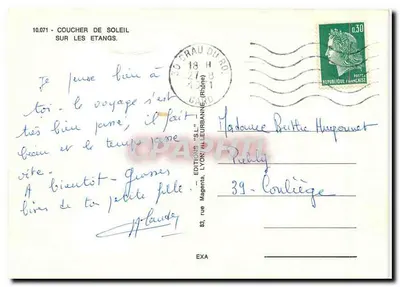 10.071 - COUCHER DE SOLEIL
SUR LES ETANGS.
Je pense bien à
toi - le voyage s'est
très bien passé, il fait
beau et le temps passe
vite.
A bientôt - Grosses
bises de ta petite fille !
30 GRAU DU ROI
18 H
GARD
0,30
EDITIONS "S.L."
83, rue Magenta, LYON-VILLEURBANNE (Rhône)
Madame Berthe Huguenet
39 - Conliège
EXA